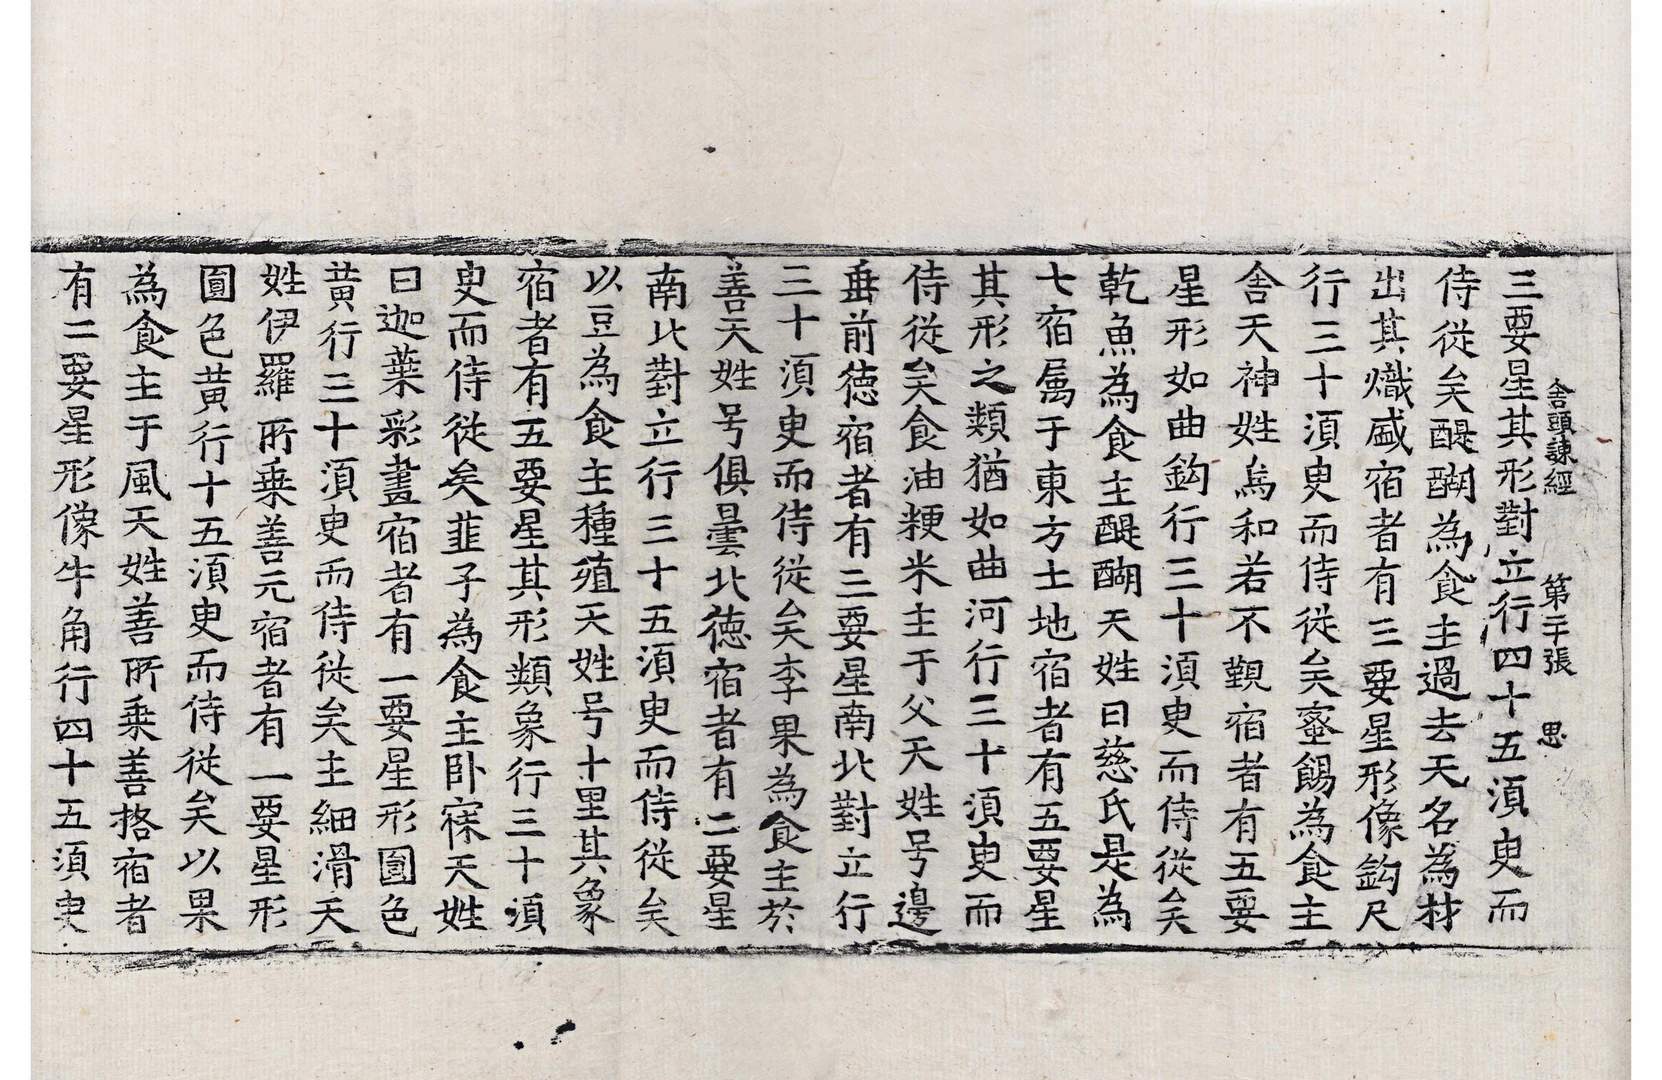 舍頭諫經 第二十張 思
三要星其形對立行四十五湏臾而
侍從矣醍醐為食主過去天名為材
出其熾盛宿者有三要星形像鈎尺
行三十湏臾而侍從矣蜜餳為食主
舍天神姓烏和若不覩宿者有五要
星形如曲鈎行三十湏臾而侍從矣
乾魚為食主醍醐天姓曰慈氏是為
七宿属于東方土地宿者有五要星
其形之類猶如曲河行三十湏臾而
侍從矣食油粳米主于父天姓号邊
垂前德宿者有二要星南北對立行
三十湏臾而侍從矣李果為食主於
善天姓号俱曇北德宿者有二要星
南北對立行三十五湏臾而侍從矣
以豆為食主種殖天姓号十里其象
宿者有五要星其形類象行三十湏
臾而侍從矣韮子為食主卧寐天姓
曰迦葉彩畫宿者有一要星形圓色
黃行三十湏臾而侍從矣主細滑天
姓伊羅所乘善元宿者有一要星形
圓色黃行十五湏臾而侍從矣以果
為食主于風天姓善所乘善挌宿者
有二要星形像牛角行四十五湏臾